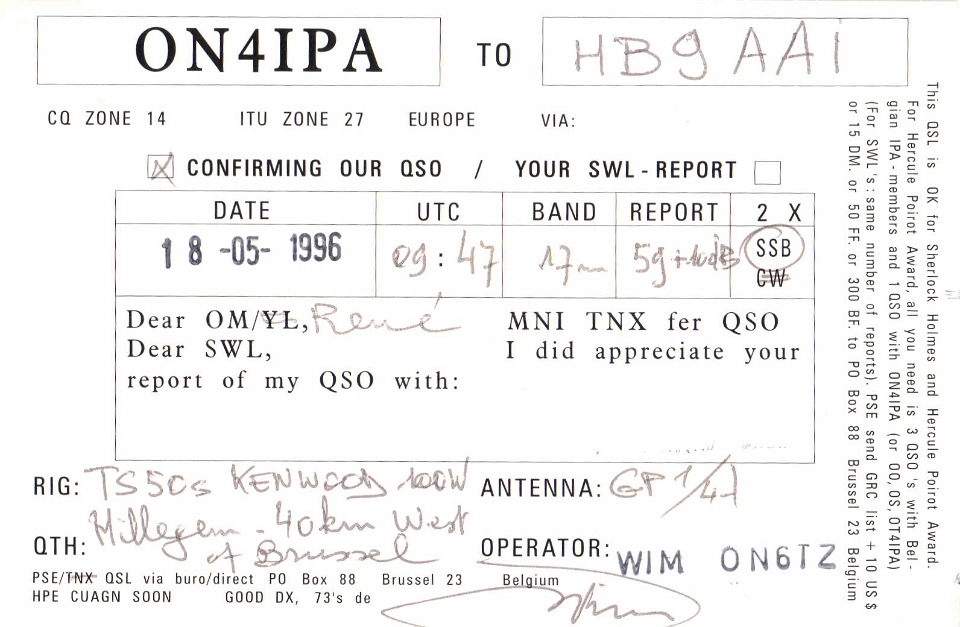 ON4IPA TO HB9AAI
CQ ZONE 14 ITU ZONE 27 EUROPE VIA:
CONFIRMING OUR QSO / YOUR SWL-REPORT
DATE UTC BAND REPORT 2 X
18-05-1996 09:47 17m 59+10dB SSB
CW
Dear OM/YL, René MNI TNX fer QSO
Dear SWL, I did appreciate your
report of my QSO with:
RIG: TS50s KENWOOD 100W ANTENNA: GP 1/4λ
Hillegem - 40km West
QTH: of Brussel OPERATOR: WIM ON6TZ
PSE/TNX QSL via buro/direct PO Box 88 Brussel 23 Belgium
HPE CUAGN SOON GOOD DX, 73's de
This QSL is OK for Sherlock Holmes and Hercule Poirot Award.
For Hercule Poirot Award, all you need is 3 QSO's with Bel-
gian IPA-members and 1 QSO with ON4IPA (or OO, OS, OT4IPA)
(For SWL's: same number of reports). PSE send GRC list + 10 US $
or 15 DM. or 50 FF. or 300 BF. to PO Box 88 Brussel 23 Belgium